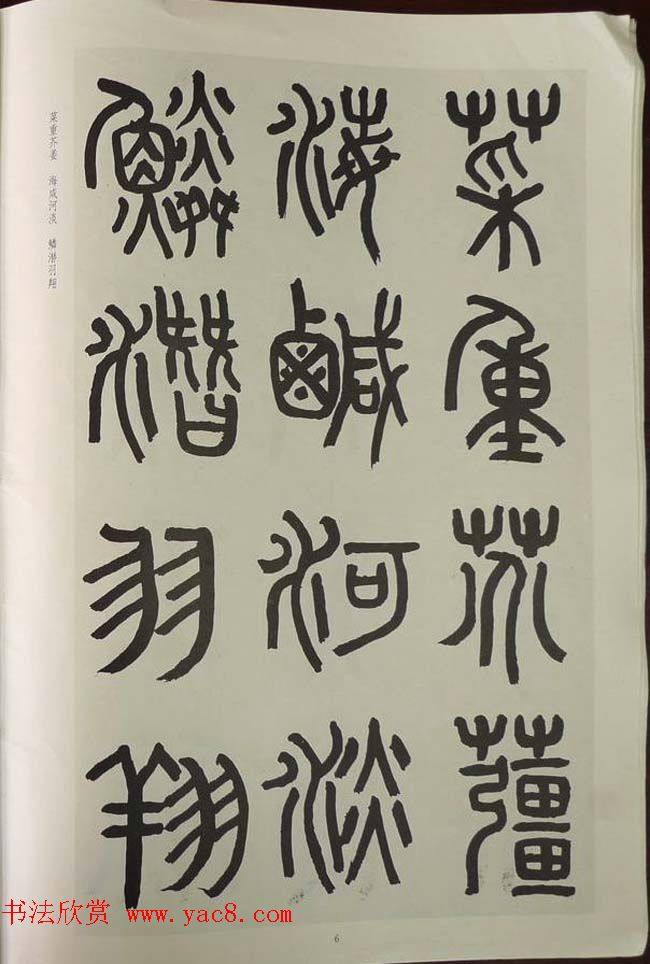 菜重芥薑
海鹹河淡
鱗潛羽翔
菜重芥姜 海咸河淡 鳞潜羽翔
6
书法欣赏 www.yac8.com